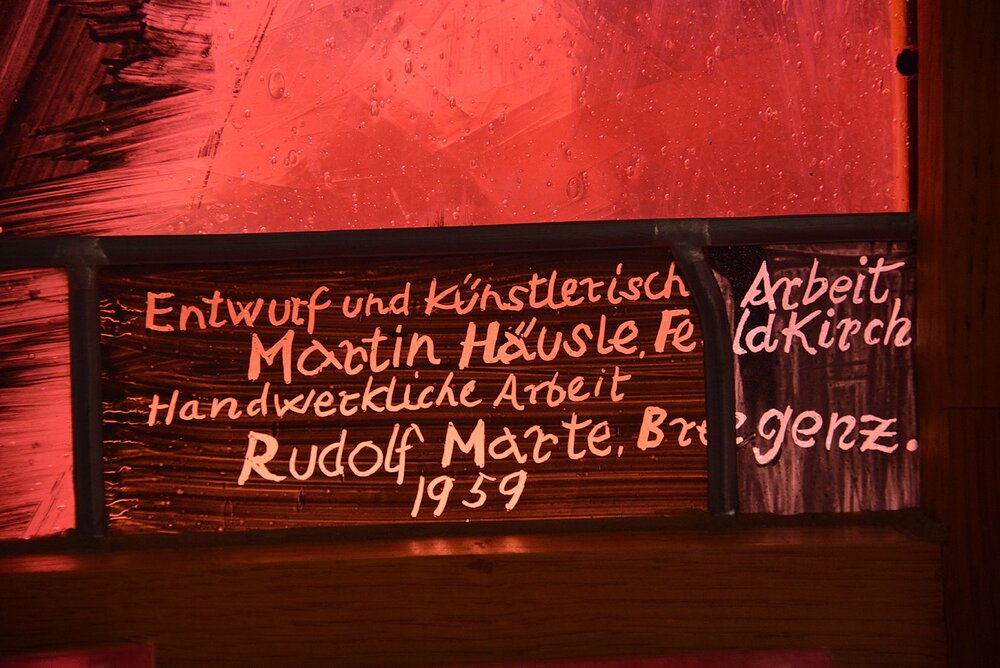 Entwurf und künstlerisch Arbeit,
Martin Häusle, Feldkirch
Handwerkliche Arbeit
Rudolf Marte, Bregenz.
1959